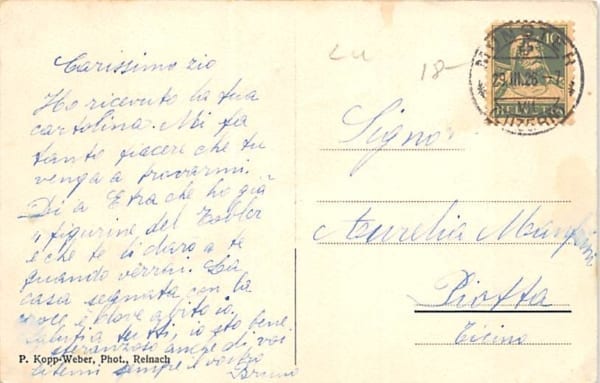 Carissimo zio
Ho ricevuto la tua
cartolina. Mi fa
tanto piacere che tu
venga a trovarmi.
Di a che ho già
4 figurine del Tobler
e che te li darò a te
quando verrai. La
casa segnata con la
croce è dove abito io.
Saluti a tutti, io sto bene
speranzoso anche di voi
sempre il vostro
Bruno
P. Kopp-Weber, Phot., Reinach
LU
18-
MÜNSTER
29.III.26
LUZERN
10
HELVETIA
Signor
Aurelia
Piotta
Ticino